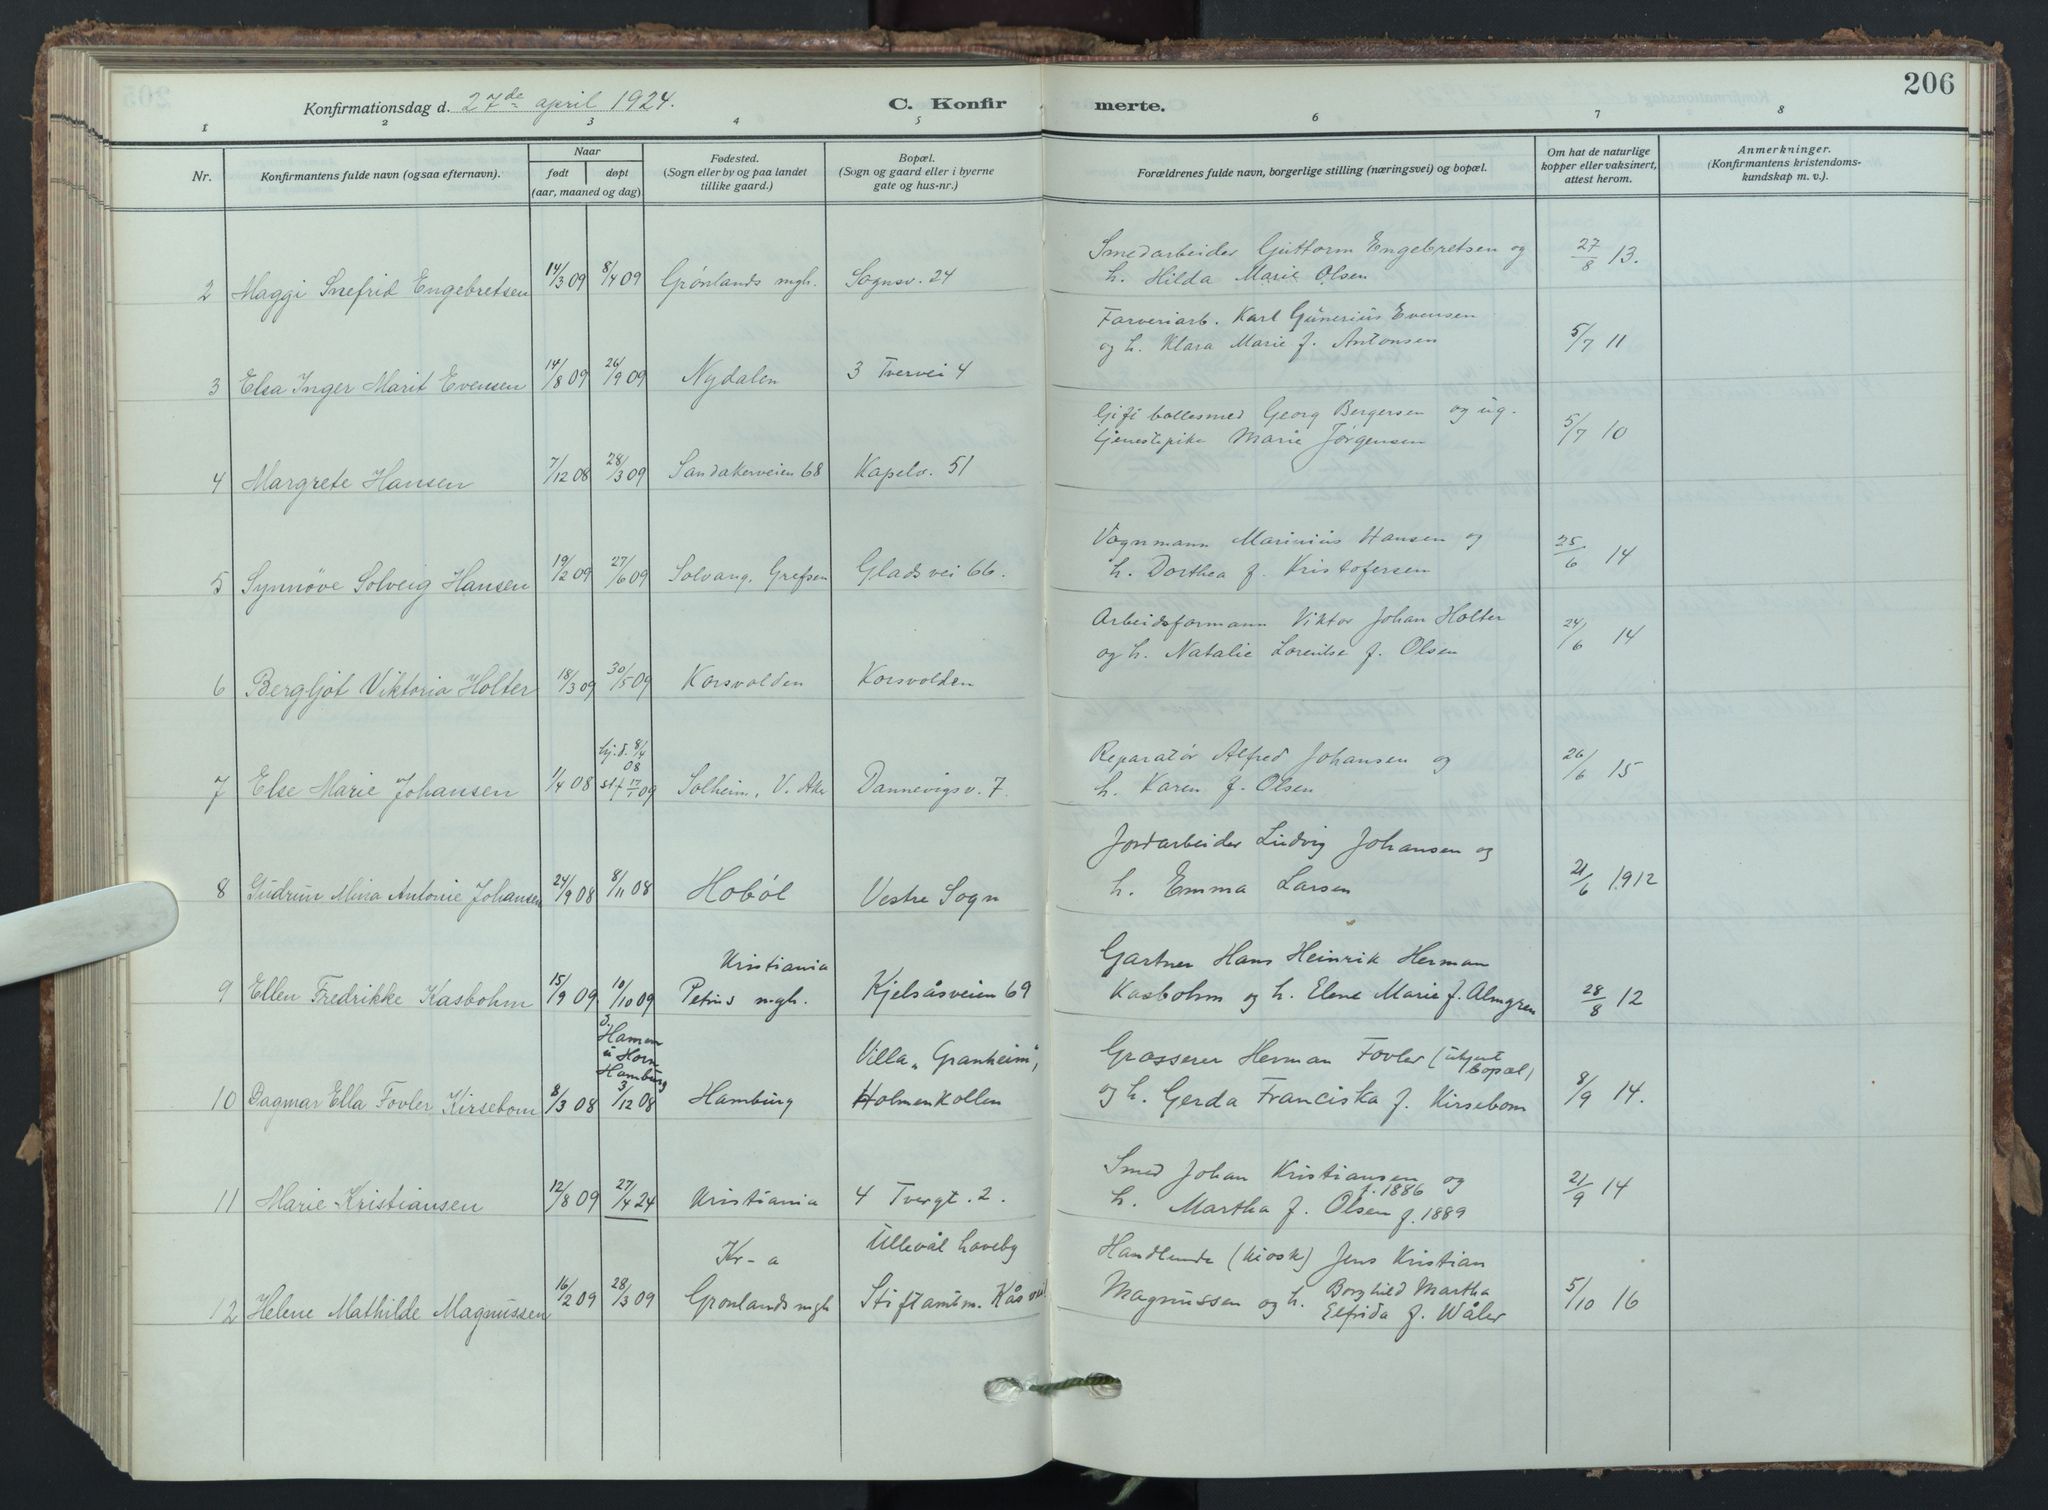 Konfirmationsdag d. 27de april 1924. C. Konfirmerte. 206
1 2 3 4 5 6 7 8
Nr. Konfirmantens fulde navn (ogsaa efternavn). Naar født døpt (aar, maaned og dag) Fødested. (Sogn eller by og paa landet tillike gaard.) Bopæl. (Sogn og gaard eller i byerne gate og hus-nr.) Forældrenes fulde navn, borgerlige stilling (næringsvei) og bopæl. Om hat de naturlige kopper eller vaksinert, attest herom. Anmerkninger. (Konfirmantens kristendomskundskap m. v.).
2 Maggi Snefrid Engebretsen 14/3 09 8/4 09 Grønlands mgh. Sognsv. 24 Smedarbeider Guttorm Engebretsen og
h. Hilda Marie Olsen 27/8 13.
3 Elsa Inger Marit Evensen 14/8 09 26/9 09 Nydalen 3 Tvervei 4 Farveriarb. Karl Gunerius Evensen
og h. Klara Marie f. Antonsen 5/7 11
4 Margrete Hansen 7/12 08 28/3 09 Sandakerveien 68 Kapelv. 51 Gift boltesmed Georg Bergersen og ug.
tjenestepike Marie Jørgensen 5/7 10
5 Synnøve Solveig Hansen 19/2 09 27/6 09 Solvang, Grefsen Glads vei 66. Vognmann Marinius Hansen og
h. Dorthea f. Kristofersen 25/6 14
6 Bergljot Viktoria Holter 18/3 09 30/5 09 Korsvolden Korsvolden Arbeidsformann Viktor Johan Holter
og h. Natalie Lorentse f. Olsen 24/6 14
7 Else Marie Johansen 1/4 08 hj.d. 8/4 08 stf 17/1 09 Solheim, V. Aker Dannevigsv. 7. Reparatør Alfred Johansen og
h. Karen f. Olsen 26/6 15
8 Gudrun Mina Antonie Johansen 24/9 08 8/11 08 Hobøl Vestre Sogn Jordarbeider Ludvig Johansen og
h. Emma Larsen 21/6 1912
9 Ellen Fredrikke Kasbohm 15/9 09 10/10 09 Kristiania Petrus mgh. Kjelsåsveien 69 Gartner Hans Heinrik Herman
Kasbohm og h. Elene Marie f. Almgren 28/8 12
10 Dagmar Ella Fovler Kirsebom 8/3 08 d. Hamm u Horn Hamburg 3/12 08 Hamburg Villa „Granheim", Holmenkollen Grosserer Herman Fovler (ukjent bopæl)
og h. Gerda Franciska f. Kirsebom 8/9 14.
11 Marie Kristiansen 12/8 09 27/4 24 Kristiania 4 Tvergt. 2. Smed Johan Kristiansen f. 1886 og
h. Martha f. Olsen f. 1889 21/9 14
12 Helene Mathilde Magnussen 16/2 09 28/3 09 Kr-a Grønlands mgh Ullevål haveby Stiftamtm. Kås vei Handlende (kiosk) Jens Kristian
Magnussen og h. Borghild Martha
Elfrida f. Wåler 5/10 16